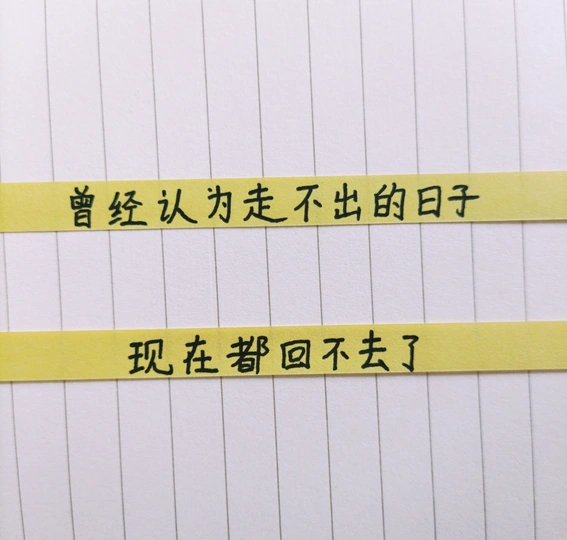 曾经认为走不出的日子
现在都回不去了